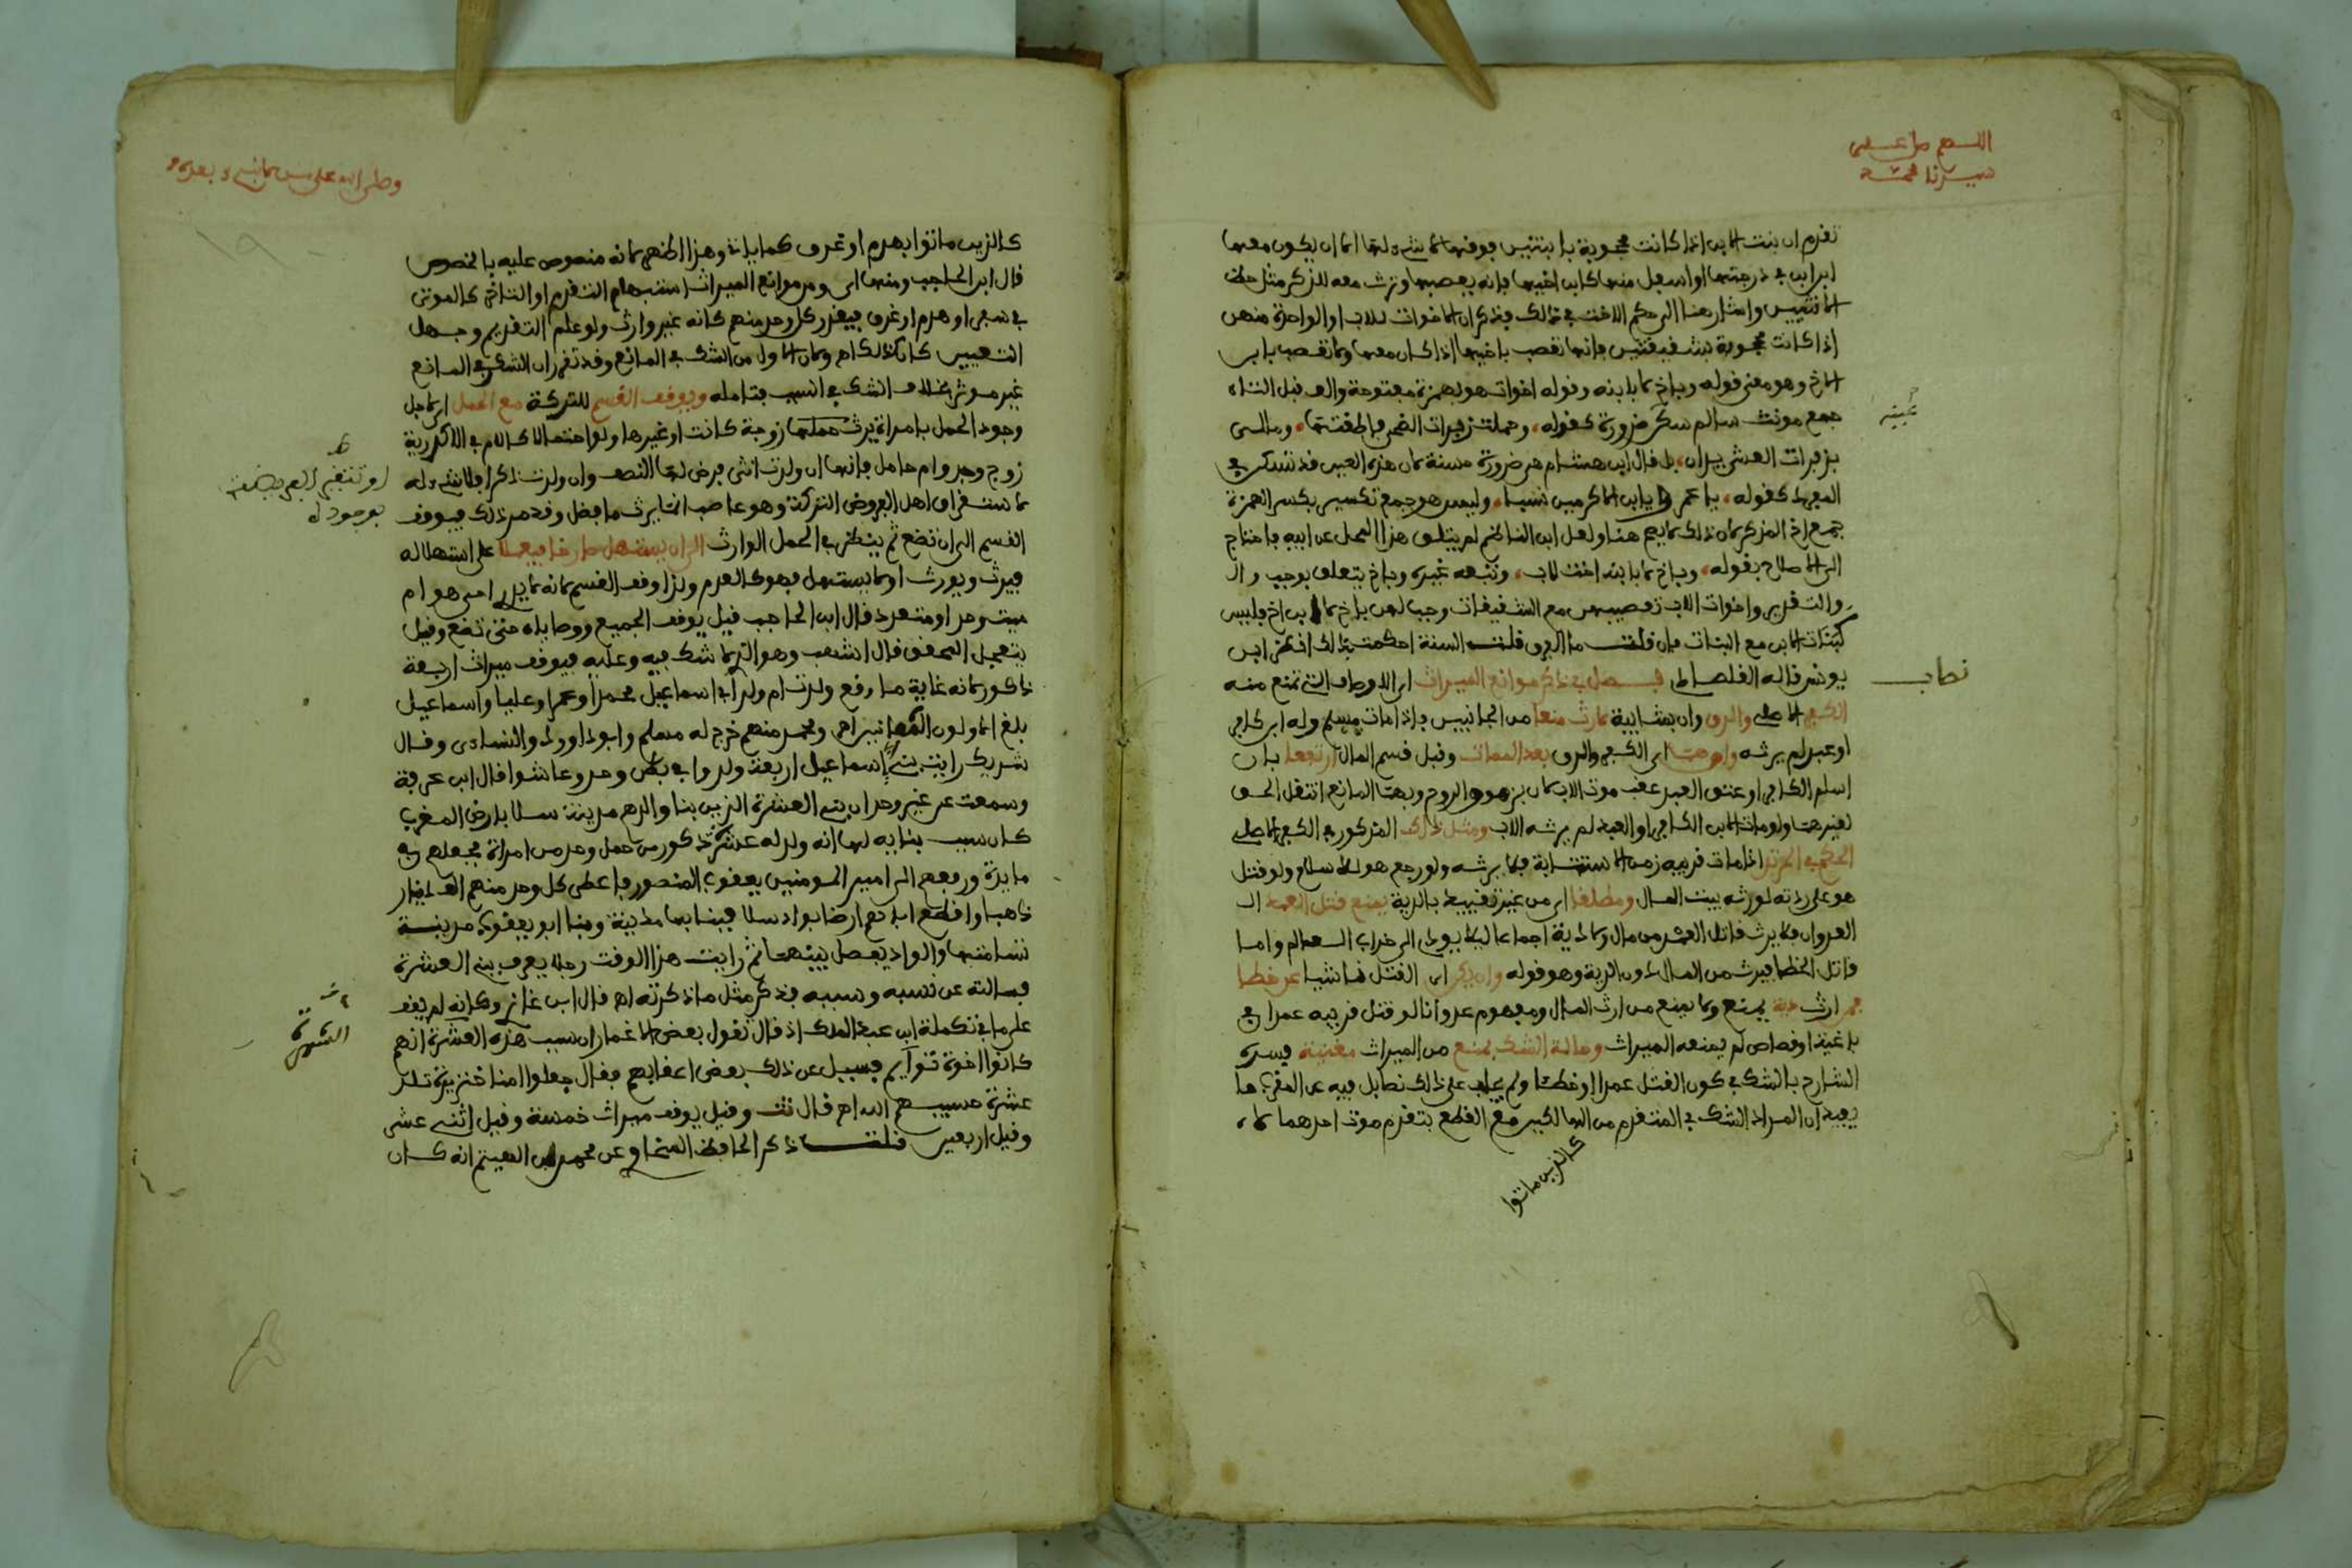 اللهم صل على
سيدنا محمد
تقدم ان بنت الابن اذا كانت محجوبة بابنتين فوقها لا شيء لها الا ان يكون معها
ابن ابن في درجتها او اسفل منها كابن اخيها فإنه يعصبها وترث معه للذكر مثل حظ
الانثيين واشار هنا الى حكم الاخت في ذلك فذكر ان الاخوات للاب او الواحدة منهن
اذا كانت محجوبة بشقيقتين فانها تعصب باخيها اذا كان معها ولا تعصب بابن
الاخ وهو معنى قوله وباخ لا بابنه وقوله اخوات هو بهمزة مفتوحة والف قبل التاء
جمع مونث سالم سكن ضرورة كقوله وحملت زفرات الضحى فاطقتها ومالي
بزفرات العشي يدان بل قال ابن هشام هي ضرورة حسنة لان هذه العين قد تسكن في
المفرد كقوله يا عمرو يا ابن الاكرمين نسبا وليس هو جمع تكسير بكسر الهمزة
جمع اخ المذكر لان ذلك لا يصح هنا ولعل ابن الناظم لم يتلق هذا المحل عن ابيه فاحتاج
الى الاصلاح بقوله وباخ لا بابنه اخت لاب وتبعه غيره وباخ يتعلق بوجب وال
والتقدير واخوات الاب تعصيبهن مع الشقيقات وجب لهن باخ لا بابن اخ فليس
كبنات الابن مع البنات فان قلت ما الفرق قلت السنة احكمت ذلك انظر ابن
يونس قاله القلصادي فصل في ذكر موانع الميراث اي الاوصاف التي تمنع منه
الكفر الاصلي والرق وان بشايبة لارث منعا من الجانبين فاذا مات مسلم وله ابن كافر
او عبد لم يرثه وان هما اي الكفر والرق بعد الممات وقبل قسم المال ارتفعا بان
اسلم الكافر او عتق العبد عقب موت الاب لان بزهوق الروح وبهذا المانع انتقل الحق
لغيرهما ولو مات الابن الكافر او العبد لم يرثه الاب ومثل ذلك المذكور في الكفر الاصلي
الحكم في المرتد اذا مات قريبه زمن الاستتابة فلا يرثه ولو رجع هو للاسلام ولو قتل
هو على ردته لورثه بيت المال ومطلقا اي من غير تقييد بالدية يمنع قتل العمد ال
العدوان فلا يرث قاتل العمد من مال ولا دية اجماعا ليلا يودي الى خراب العالم واما
قاتل الخطا فيرث من المال دون الدية وهو قوله وان يكن اي القتل ناشيا عن خطا
فمن ارث دية يمنع ولا يمنع من ارث المال ومفهوم عدوانا لو قتل قريبه عمدا في
باغية او قصاص لم يمنعه الميراث وحالة الشك بمنع من الميراث مغنية فسره
الشارح بالشك في كون القتل عمدا او خطا ولم يجلب على ذلك نصا بل فيه عن المقري ما
يفيد ان المراد الشك في المتقدم من الهالكين مع القطع بتقدم موت احدهما لا
كالذين ماتوا
نصاب
وصلى الله على من لا نبي بعده
كالذين ماتوا بهدم او غرق كما ياتي وهذا اظهر لانه منصوص عليه بالخصوص
قال ابن الحاجب ومنها اي ومن موانع الميراث استبهام التقدم او التاخر كالموتى
في سفر او هدم او غرق فيقدر كل واحد منهم كانه غير وارث ولو علم التقديم وجهل
التعيين كان كذلك اه ولان الاول من الشك في المانع وقد تقرر ان الشك في المانع
غير موثر بخلاف الشك في السبب فتامله ويوقف القسم للتركة مع الحمل اي لاجل
وجود الحمل بامراة يرث حملها زوجة كانت او غيرها ولو احتمالا كالام في الاكدرية
زوج وجد وام حامل فانها ان ولدت انثى فرض لها النصف وان ولدت ذكرا فلا شيء له
لاستغراق اهل الفروض التركة وهو عاصب انما يرث ما فضل وقد مر ذلك فيوقف
القسم الى ان تضع ثم ينظر في الحمل الوارث الى ان يستهل صارخا فيعملا على استهلاله
فيرث ويورث او لا يستهل فهو كالعدم ولذا وقف القسم لانه لا يدرى احي هو ام
ميت وحد او متعدد قال ابن الحاجب قيل يوقف الجميع ووصاياه حتى تضع وقيل
يتعجل المحقق قال اشهب وهو الذي لا شك فيه وعليه فيوقف ميراث اربعة
ذكور لانه غاية ما وقع ولدت ام ولد ابي اسماعيل محمدا وعمرا وعليا واسماعيل
بلغ الاولون الثمانين اه ومحمد منهم خرج له مسلم وابو داوود والنساءي وقال
شريك رايت بني اسماعيل اربعة ولدوا في بطن وحد وعاشوا قال ابن عرفة
وسمعت عن غير وحد ان بني العشرة الذين بنا والدهم مدينة سلا بارض المغرب
كان سبب بنايه لها انه ولد له عشرة ذكور من حمل وحد من امراة فجعلهم في
مايدة ورفعهم الى امير المومنين يعقوب المنصور فاعطى كل وحد منهم الف دينار
ذهبا واقطع اباهم ارضا بواد سلا فبنا بها مدينة وبنا ابو يعقوب مدينة
تسامتها والواد يفصل بينهما ثم رايت هذا الوقت رجلا يعرف ببني العشرة
فسالته عن نسبه وسببه فذكر مثل ما ذكرته اه قال ابن غازي وكانه لم يقف
على ما في تكملة ابن عبد الملك اذ قال تقول بعض الاغمار ان سبب هذه العشرة انهم
كانوا اخوة توايم فسيل عن ذلك بعض اعقابهم فقال جعلوا امنا خنزيرة تلد
عشرة حسيبهم الله اه قال تت وقيل يوقف ميراث خمسة وقيل اثني عشر
وقيل اربعين قلت ذكر الحافظ السخاوي عن محمد بن الهيثم انه كان